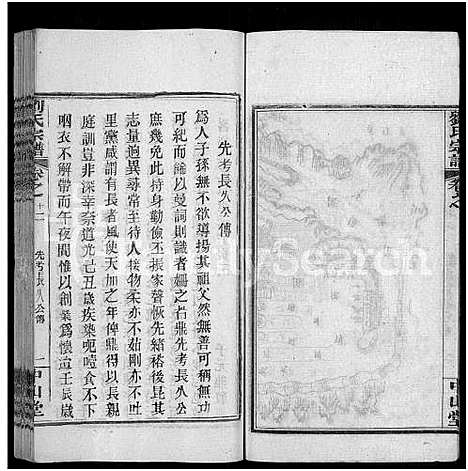 劉氏宗譜
卷之
中山堂
先考長久公傳
為人子孫無不欲導揚其祖父然無善可稱無功
可紀而縷以曼詞則識者嗤之占鼎先考長久公
庶幾免此持身勤儉振家聲恢先緒裕後昆其
志量過人遠甚至待人接物柔亦不茹剛亦不吐
里黨咸謂有長者風使天加之年俾鼎得以長親
庭訓豈非深幸奈道光己丑歲疾染呃噎食不下
咽衣不解帶而午夜間惟以創業為懷迨壬辰歲
劉氏宗譜
卷之十二
先考長久公傳
一
中山堂
FamilySearch